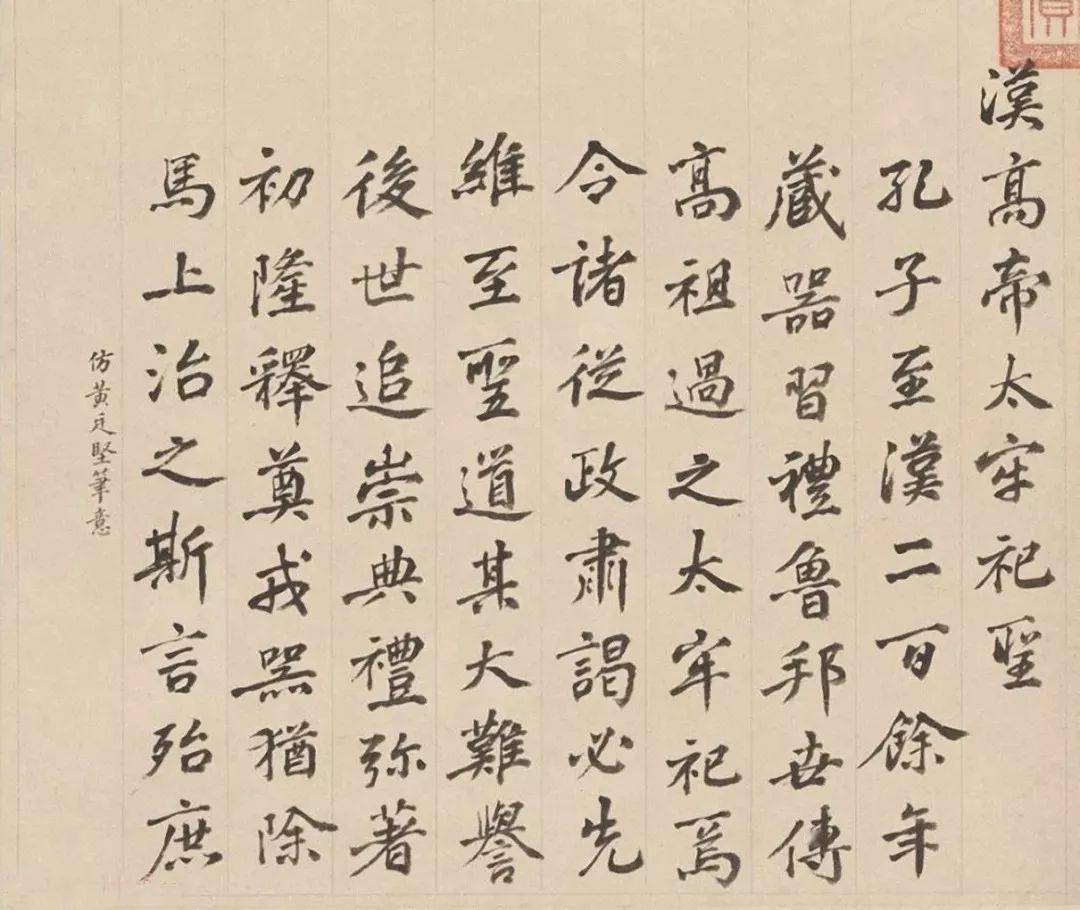 漢高帝太牢祀聖
孔子至漢二百餘年
藏器習禮魯邦世傳
高祖過之太牢祀焉
令諸從政肅謁必先
維至聖道其大難譽
後世追崇典禮弥著
初隆釋奠戎器猶除
馬上治之斯言殆庶
仿黃廷堅筆意